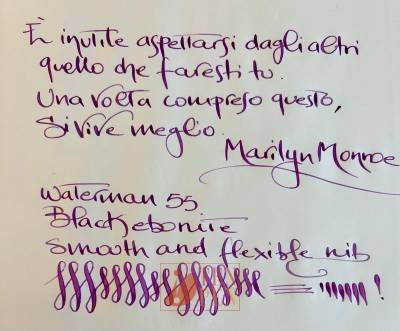 È inutile aspettarsi dagli altri
quello che faresti tu.
Una volta compreso questo,
si vive meglio.
Marilyn Monroe
Waterman 55
Black ebonite
Smooth and flexible nib
!